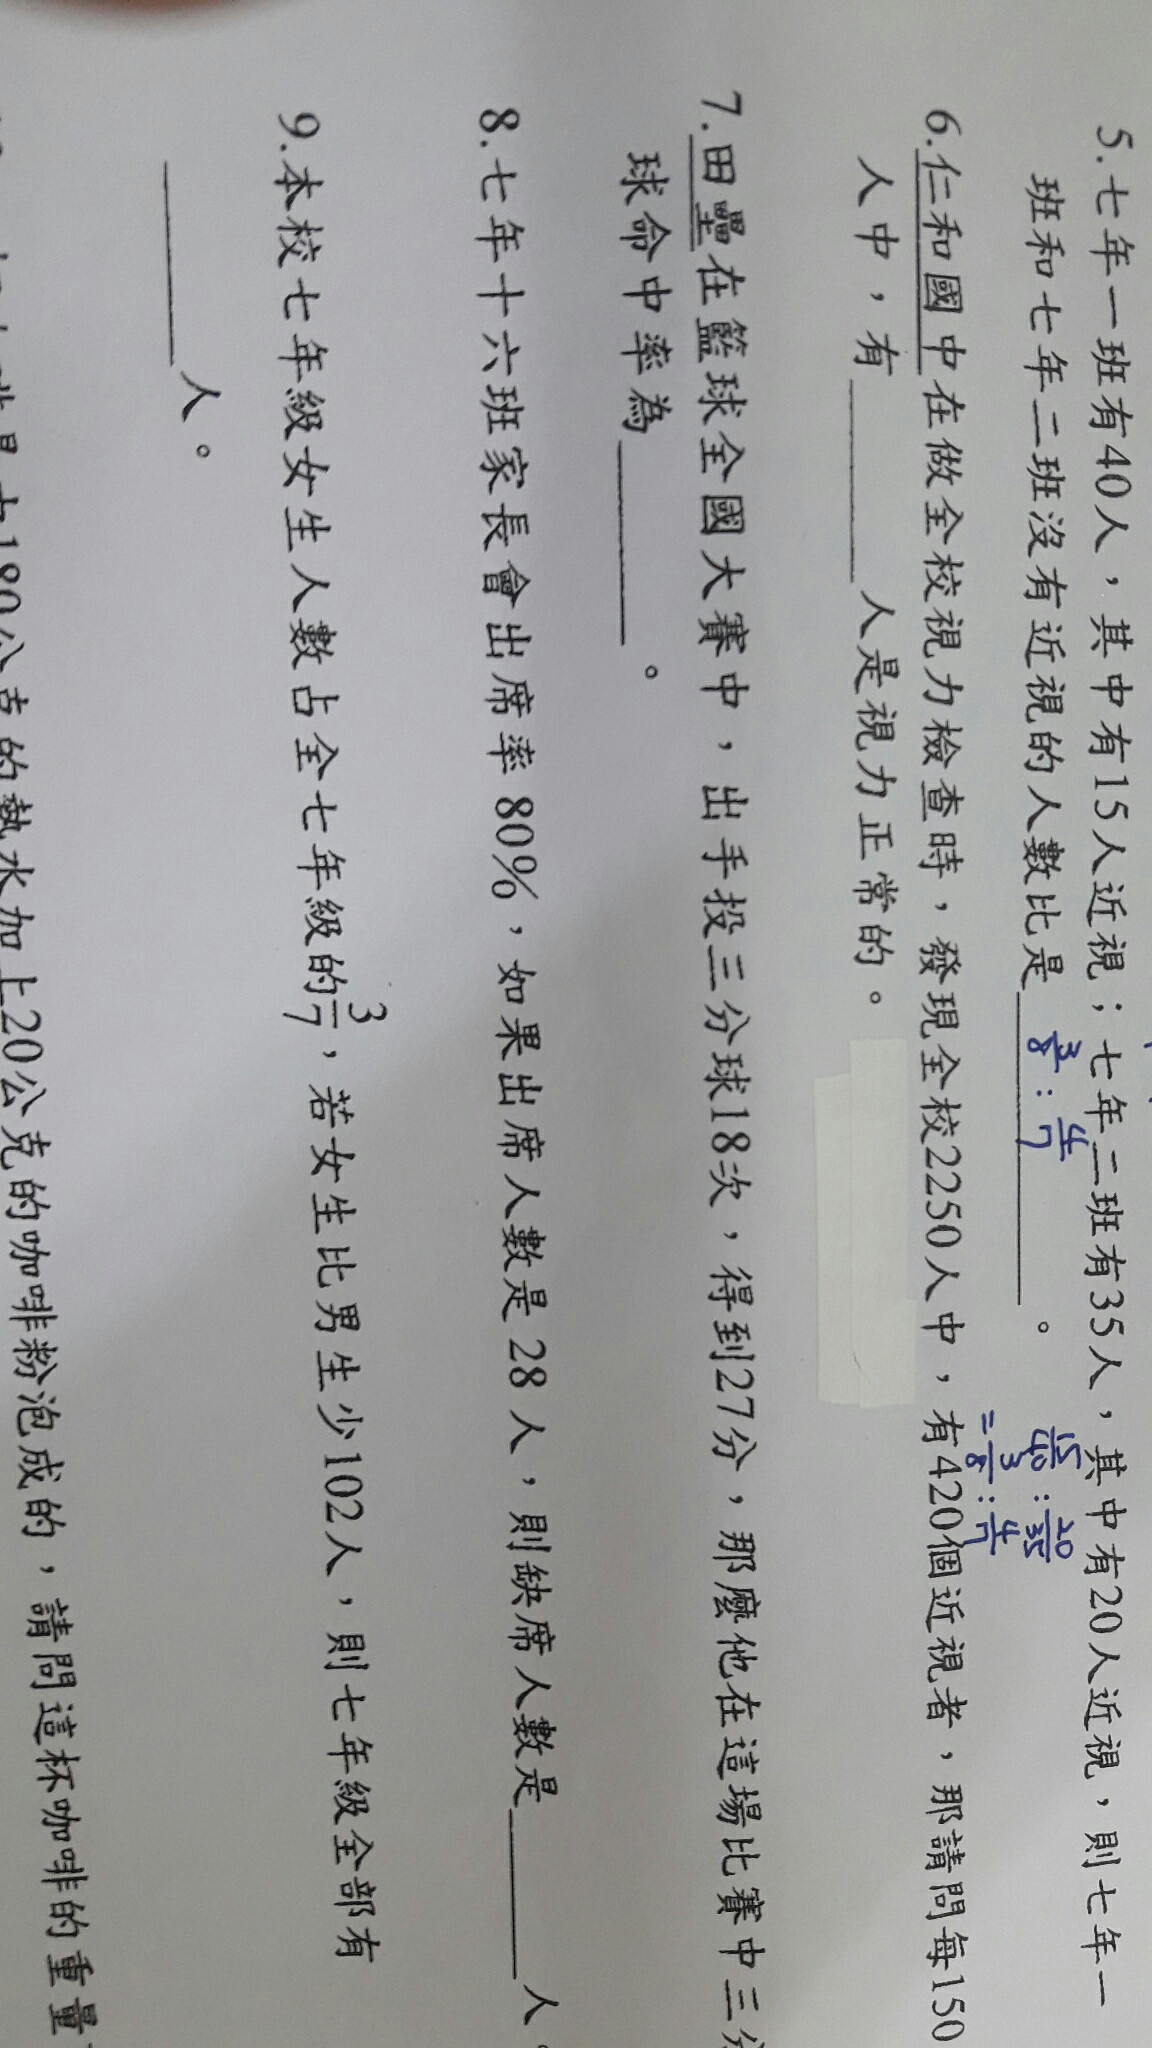 5.七年一班有40人，其中有15人近視；七年二班有35人，其中有20人近視，則七年一
班和七年二班沒有近視的人數比是 3/8 : 4/7 。
15/40 : 20/35
= 3/8 : 4/7
6.仁和國中在做全校視力檢查時，發現全校2250人中，有420個近視者，那請問每150
人中，有______人是視力正常的。
7.田壘在籃球全國大賽中，出手投三分球18次，得到27分，那麼他在這場比賽中三分
球命中率為______。
8.七年十六班家長會出席率80%，如果出席人數是28人，則缺席人數是______人。
9.本校七年級女生人數占全七年級的3/7，若女生比男生少102人，則七年級全部有
______人。
180公克的熱水加上20公克的咖啡粉泡成的，請問這杯咖啡的重量